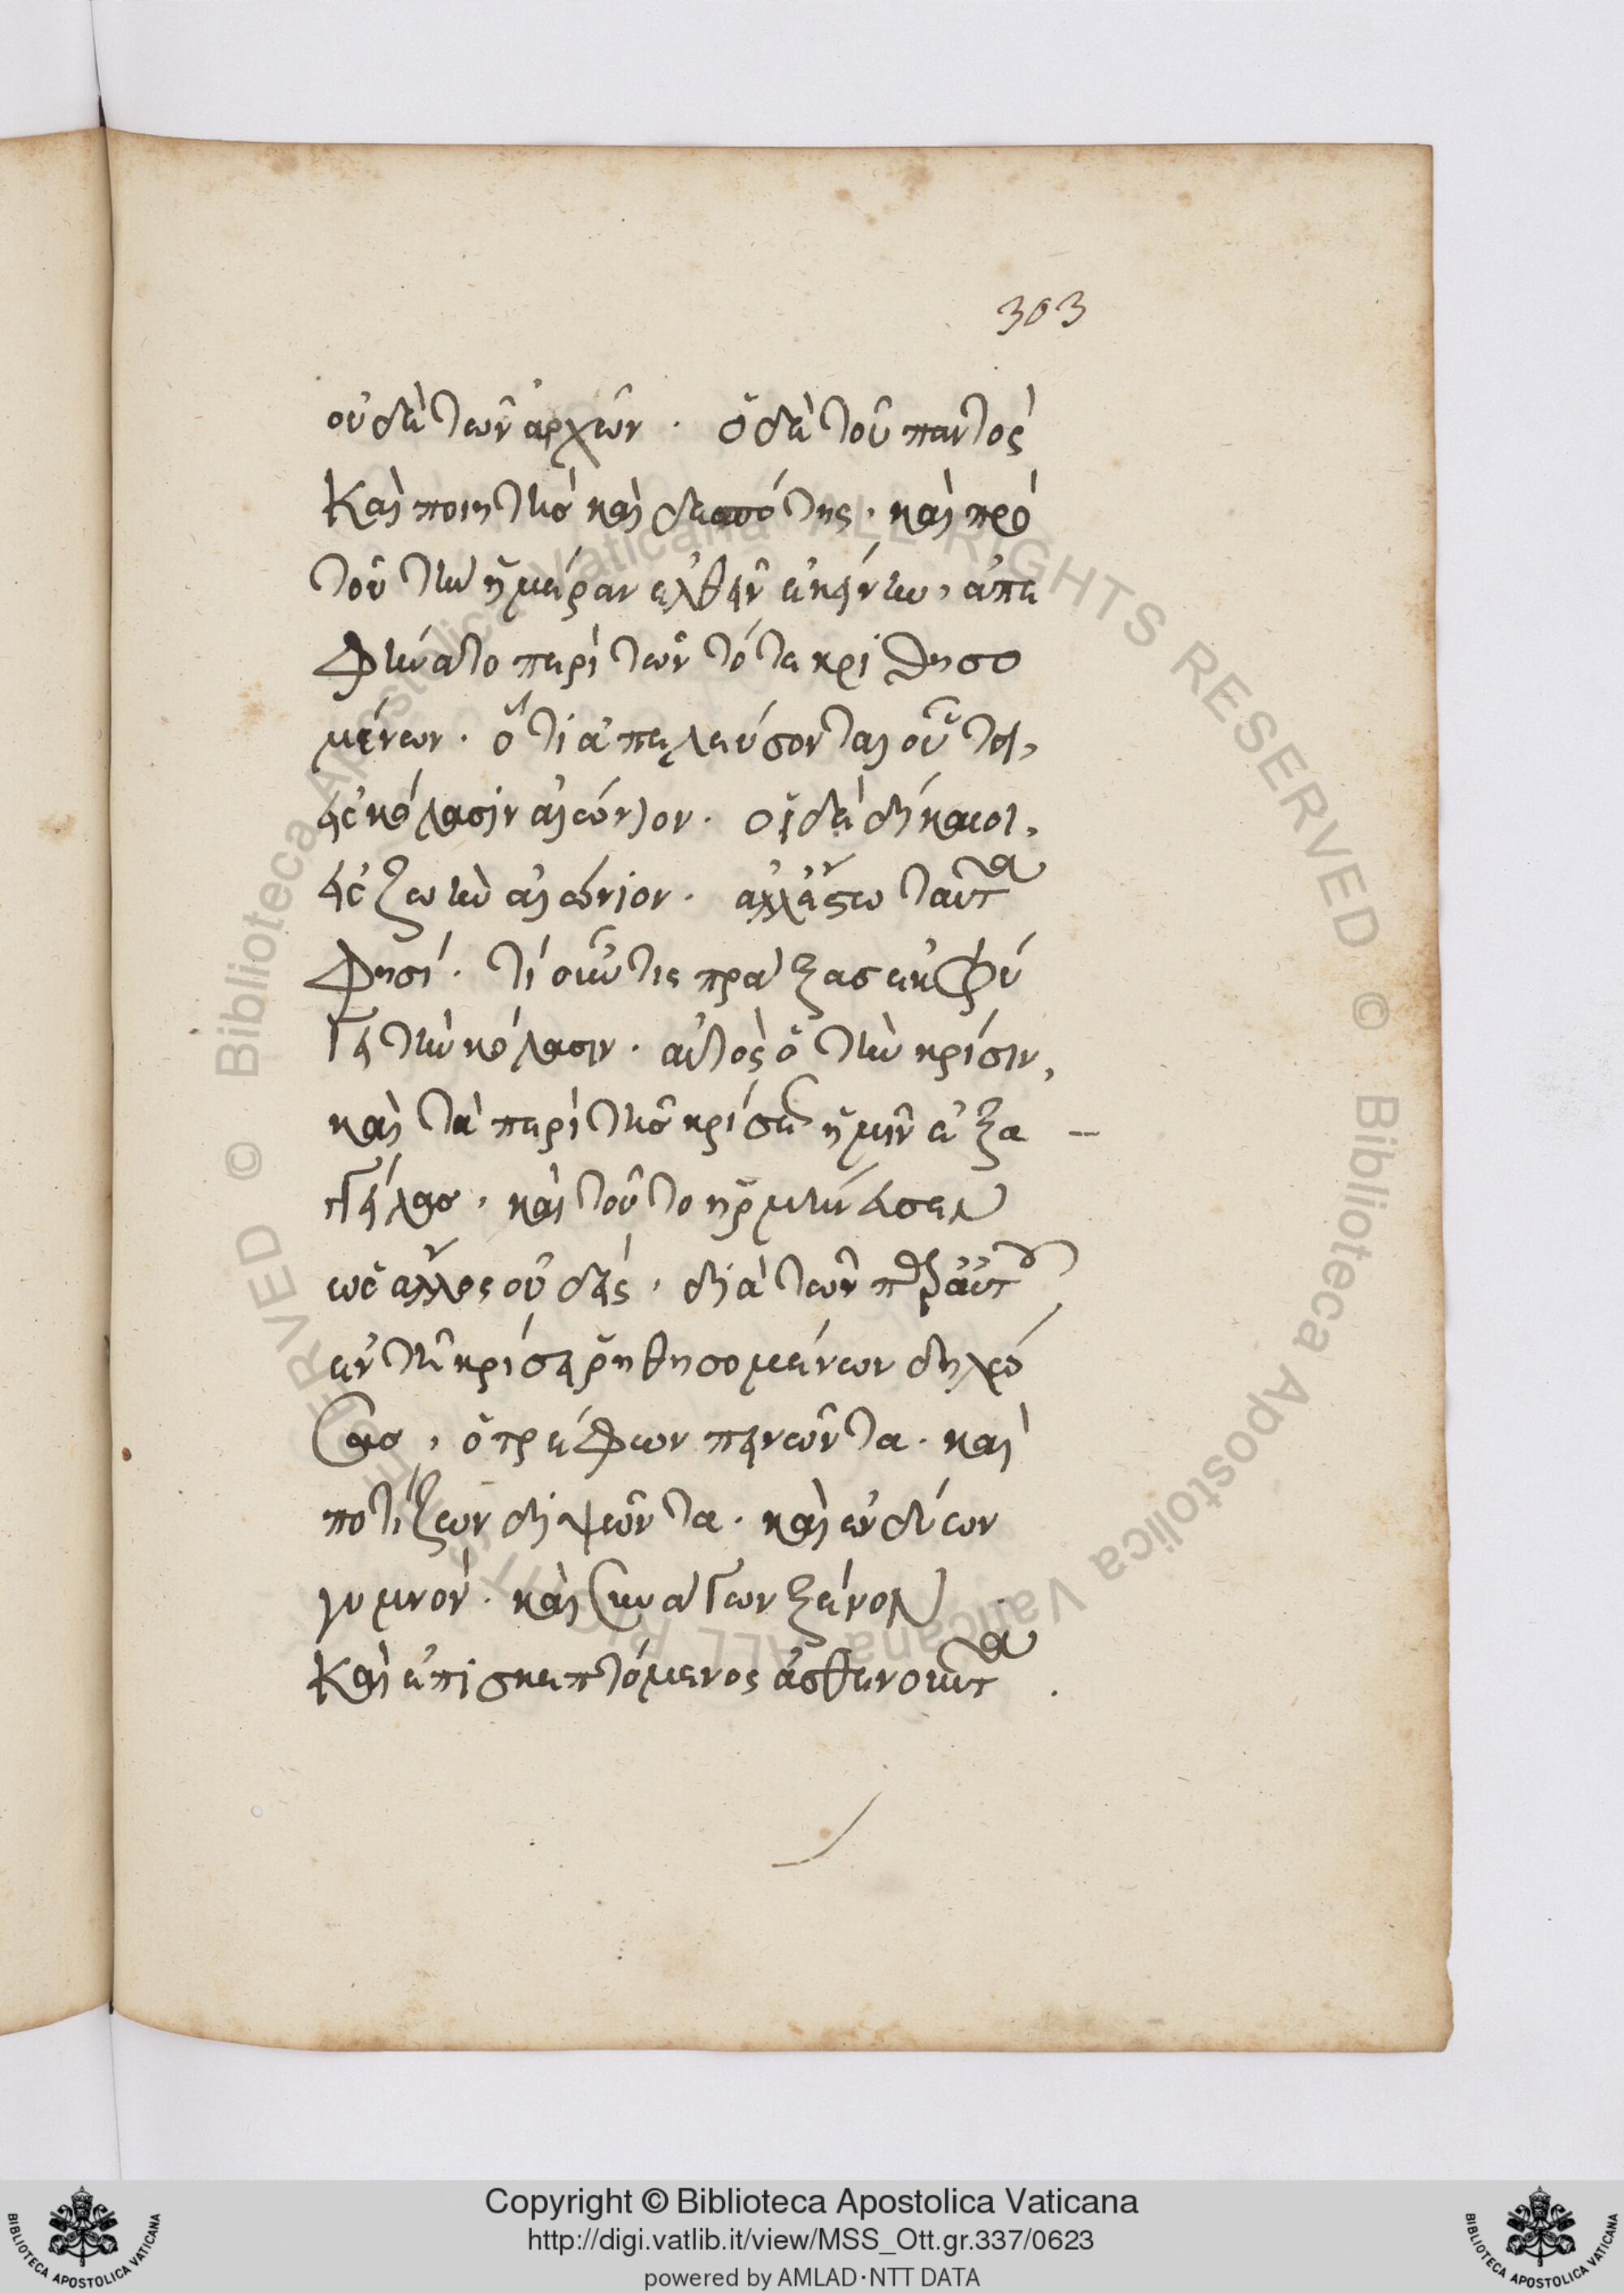 303
οὐδὲ τῶν ἀρχῶν · ὁ δὲ τοῦ παντὸς
Καὶ ποιητὴσ καὶ δεσπότης · καὶ πρὸ
τοῦ τὴν ἡμέραν ἐλθεῖν ἐκείνην, ἀπε
φήνατο περὶ τῶν τότε κριθησο
μένων · ὅτι ἀπελεύσονται οὗτοι,
εἰς κόλασιν αἰώνιον · οἱ δὲ δίκαιοι,
εἰς ζωὴν αἰώνιον · ἀλλ' ἔστω ταῦτα
φησί · τί οὖν τις πράξασ ἐκφύ
γῃ τὴν κόλασιν · αὐτὸς ὁ τὴν κρίσιν,
καὶ τὰ περὶ τῆσ κρίσεως ἡμῖν ἐξα
γγείλασ, καὶ τοῦτο ἡρμήνευσεν
ὡς ἄλλος οὐδείς, διὰ τῶν παρ' αὐτοῦ
ἐν τῇ κρίσει ῥηθησομένων δηλώ
σασ, ὁ τρέφων πεινῶντα · καὶ
ποτίζων διψῶντα · καὶ ἐνδύων
γυμνόν · καὶ συνάγων ξένον
Καὶ ἐπισκεπτόμενος ἀσθενοῦντα .
Copyright © Biblioteca Apostolica Vaticana
http://digi.vatlib.it/view/MSS_Ott.gr.337/0623
powered by AMLAD·NTT DATA
BIBLIOTECA APOSTOLICA VATICANA
BIBLIOTECA APOSTOLICA VATICANA
© Biblioteca Apostolica Vaticana ALL RIGHTS RESERVED © Biblioteca Apostolica Vaticana ALL RIGHTS RESERVED